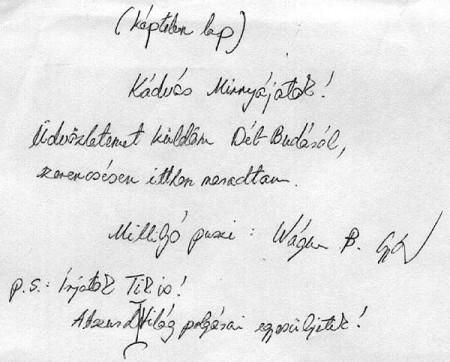 (képtelen lap)
Kádvás Mirnyájatok!
Üdvözletemet küldöm Dél-Budáról,
szerencsésen itthon maradtam.
MilliGó puszi : Wágner B.
p.s.: Írjatok Ti is!
Abszurd Világ polgárai egyesüljetek!